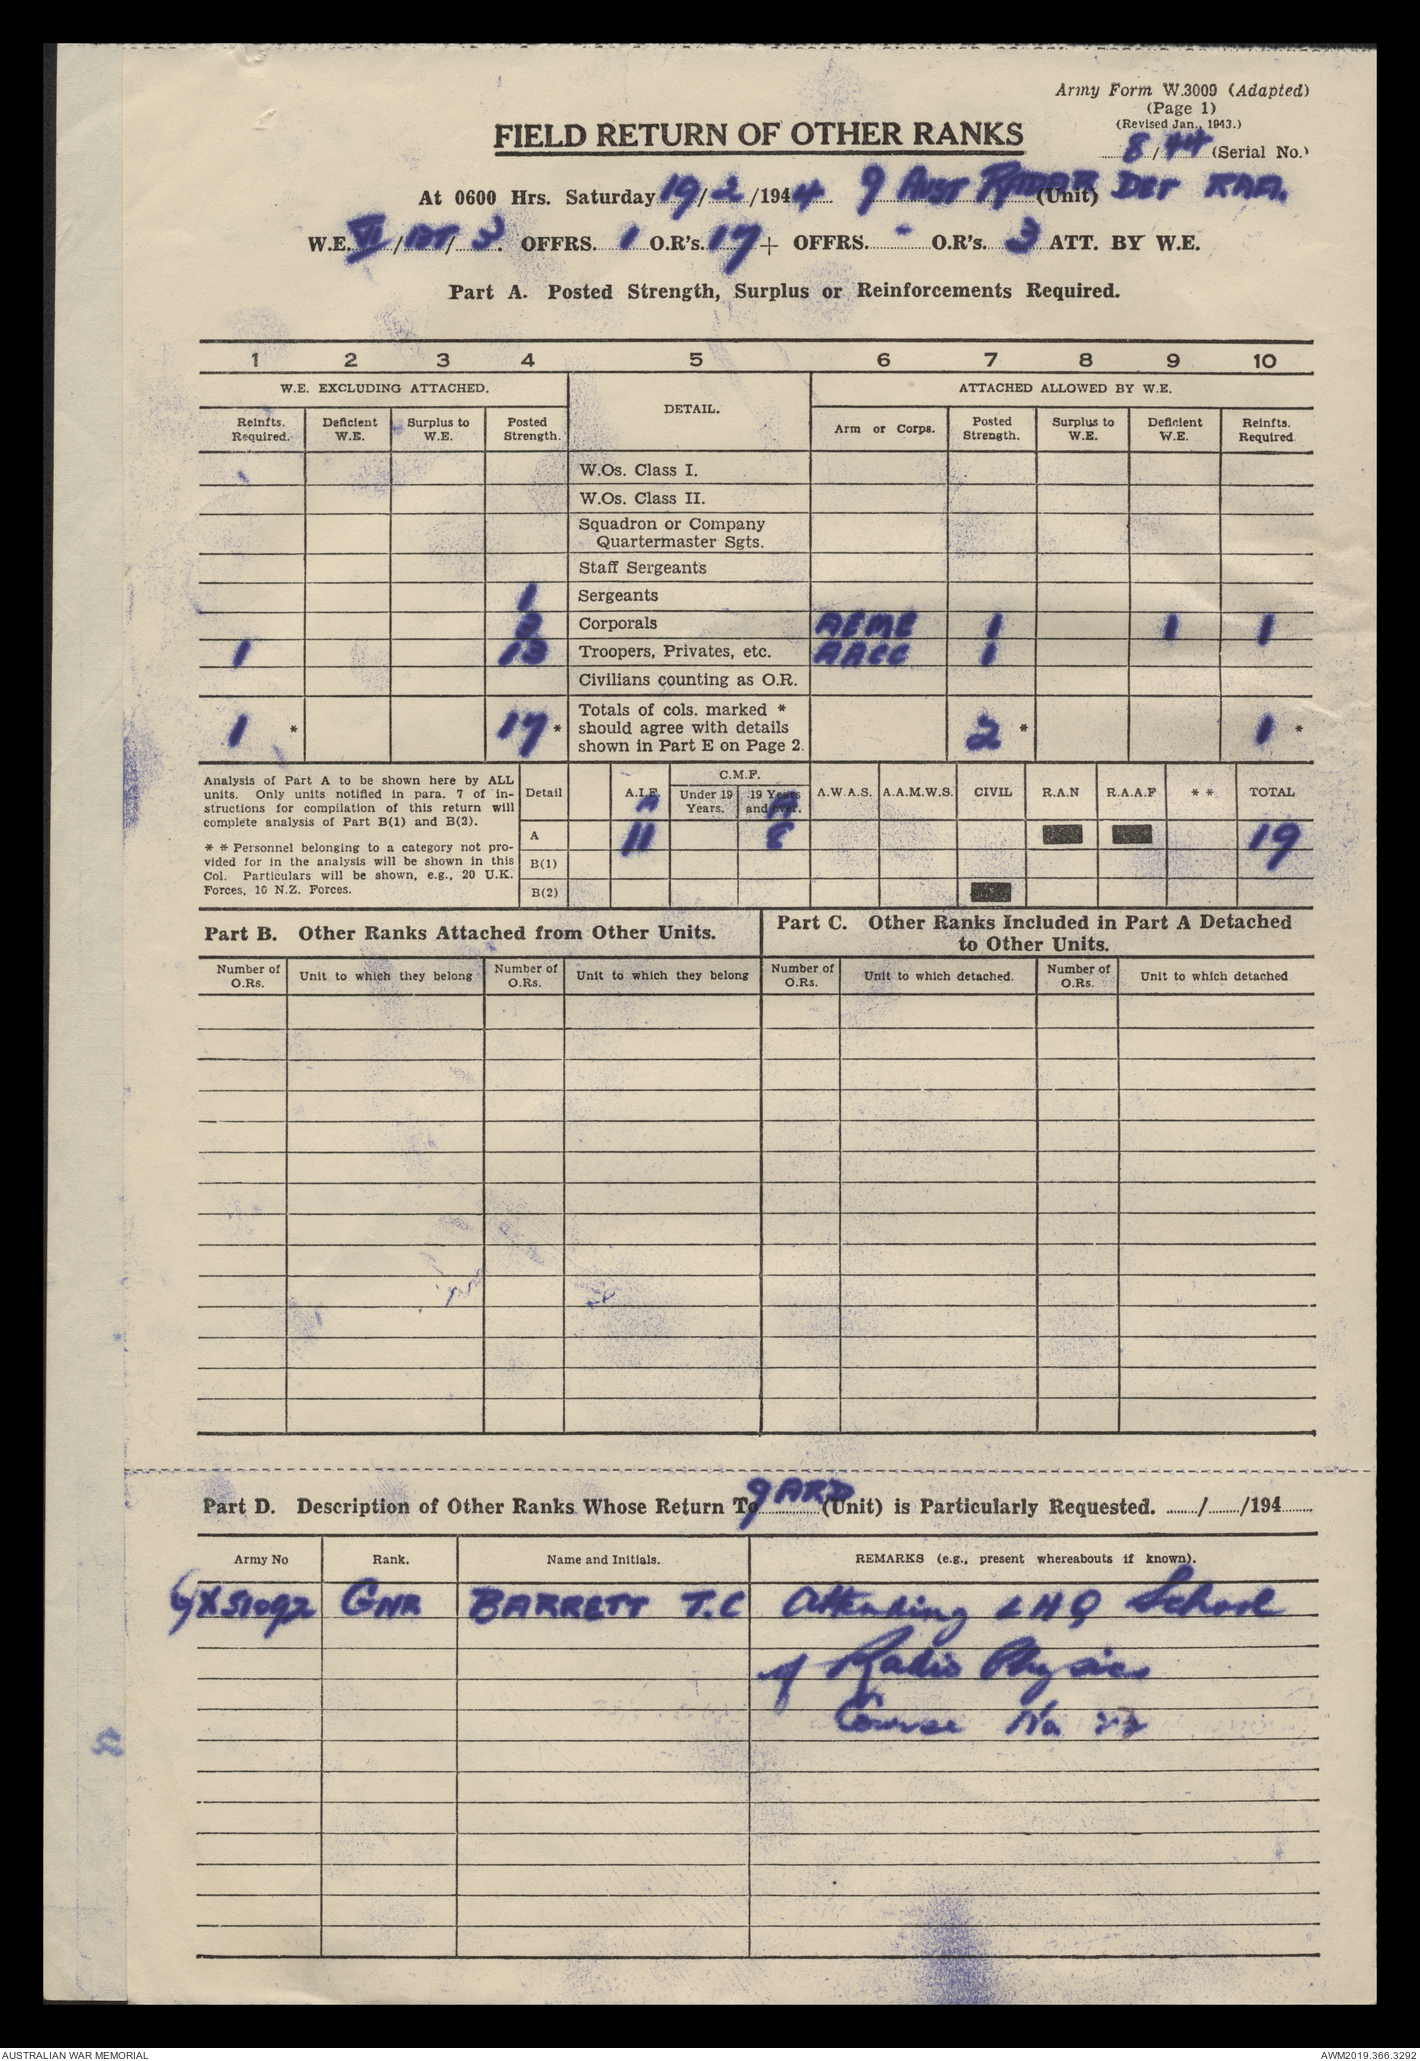 Army Form W.3009 (Adapted)
(Page 1)
(Revised Jan., 1943.)
FIELD RETURN OF OTHER RANKS
8/44 (Serial No.)
At 0600 Hrs. Saturday 19/2/1944 9 Aust RADAR (Unit) DET RAA.
W.E. VI / / 3. OFFRS. 1 O.R's. 17 + OFFRS. - O.R's. 3 ATT. BY W.E.
Part A. Posted Strength, Surplus or Reinforcements Required.
1 2 3 4 5 6 7 8 9 10
W.E. EXCLUDING ATTACHED. DETAIL. ATTACHED ALLOWED BY W.E.
Reinfts. Required. Deficient W.E. Surplus to W.E. Posted Strength. Arm or Corps. Posted Strength. Surplus to W.E. Deficient W.E. Reinfts. Required.
W.Os. Class I.
W.Os. Class II.
Squadron or Company
Quartermaster Sgts.
Staff Sergeants
1 Sergeants
Corporals AEME 1 1 1
1 13 Troopers, Privates, etc. AACC 1
Civilians counting as O.R.
1 * 17 * Totals of cols. marked * should agree with details shown in Part E on Page 2. 2 * 1 *
Analysis of Part A to be shown here by ALL
units. Only units notified in para. 7 of in-
structions for compilation of this return will
complete analysis of Part B(1) and B(2).
* * Personnel belonging to a category not pro-
vided for in the analysis will be shown in this
Col. Particulars will be shown, e.g., 20 U.K.
Forces, 10 N.Z. Forces.
Detail A.I.F. C.M.F. Under 19 Years. 19 Years and over. A.W.A.S. A.A.M.W.S. CIVIL R.A.N R.A.A.F * * TOTAL
A 11 8 19
B(1)
B(2)
Part B. Other Ranks Attached from Other Units.
Part C. Other Ranks Included in Part A Detached
to Other Units.
Number of O.Rs. Unit to which they belong Number of O.Rs. Unit to which they belong Number of O.Rs. Unit to which detached. Number of O.Rs. Unit to which detached
Part D. Description of Other Ranks Whose Return To 9 ARD (Unit) is Particularly Requested. ....../....../194......
Army No Rank. Name and Initials. REMARKS (e.g., present whereabouts if known).
GNR BARRETT T.C Attending LHQ School
of Radio Physics
Course No 22
AUSTRALIAN WAR MEMORIAL AWM2019.366.3292